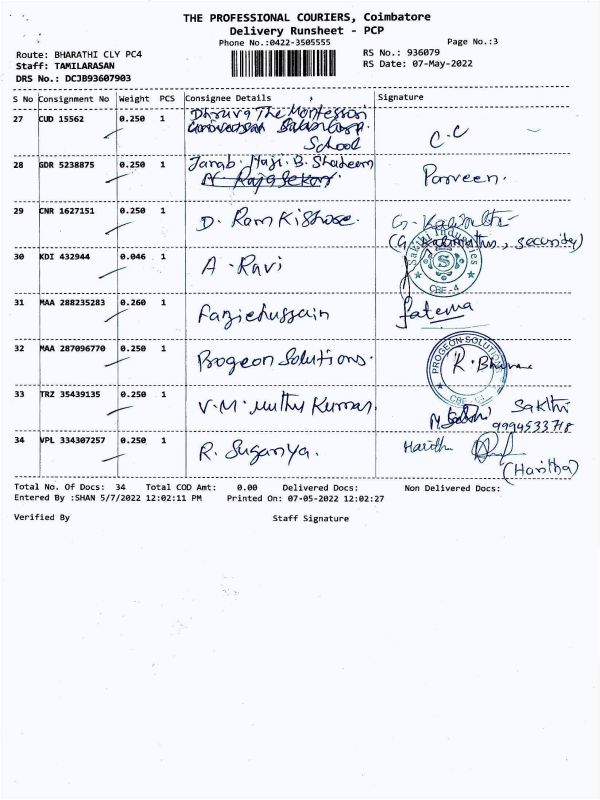 THE PROFESSIONAL COURIERS, Coimbatore
Delivery Runsheet - PCP
Phone No.:0422-3505555
Page No.:3
Route: BHARATHI CLY PC4
RS No.: 936079
Staff: TAMILARASAN
RS Date: 07-May-2022
DRS No.: DCJB93607903
S No Consignment No Weight PCS Consignee Details Signature
27 CUD 15562 0.250 1 Dhruva The Montessori
School
C.C
28 GDR 5238875 0.250 1 Janab. Haji. B. Shaheem
N. Rajasekar.
Parveen.
29 CNR 1627151 0.250 1 D. Ram Kishore.
(G. security)
30 KDI 432944 0.046 1 A. Ravi
Sakthi Industries
S
CBE-4
31 MAA 288235283 0.260 1 Fazlehussain fatema
32 MAA 287096770 0.250 1 Progeon Solutions.
PROGEON SOLUTIONS
R. Bhuvana
33 TRZ 35439135 0.250 1 V.M. Muthu Kumar.
Sakthi
9994533718
34 VPL 334307257 0.250 1 R. Suganya.
Haritha
(Haritha)
Total No. Of Docs: 34 Total COD Amt: 0.00 Delivered Docs: Non Delivered Docs:
Entered By :SHAN 5/7/2022 12:02:11 PM Printed On: 07-05-2022 12:02:27
Verified By Staff Signature